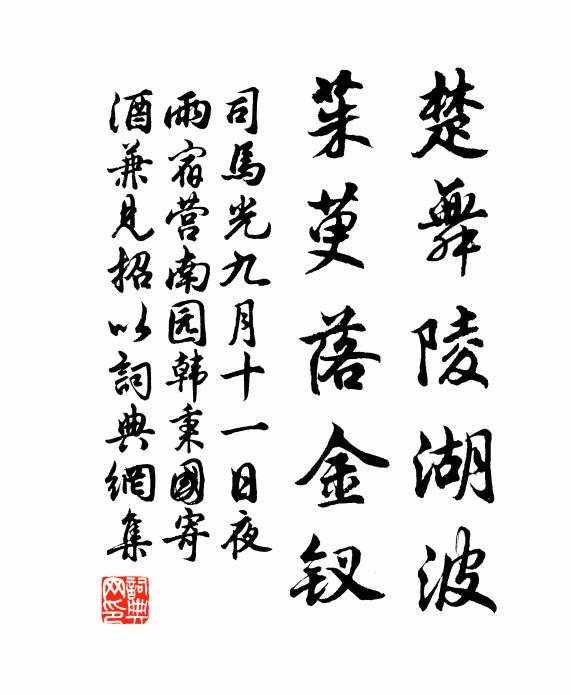 楚舞陵湖波
茱萸落金钗
司馬光九月十一日夜
雨宿营南园韩秉國寄
酒兼見招以詞典網集
詞典